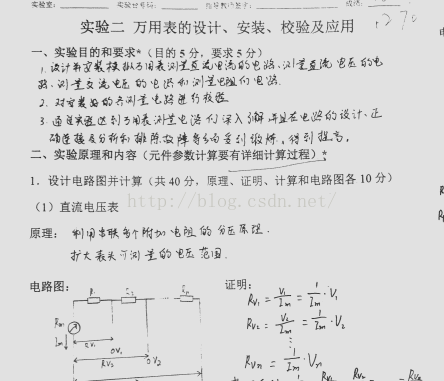 实验室: 实验台号码: 指导教师签字: 成绩:
实验二 万用表的设计、安装、校验及应用
一、实验目的和要求*(目的 5 分，要求 5 分)
1. 设计并安装模拟万用表测量直流电流的电路、测量直流电压的电
路、测量交流电压的电路和测量电阻的电路.
2. 对安装好的测量电路进行校验
3. 通过实验达到万用表测量电路的深入了解并且在电路的设计、正
确连接及分析和排除故障等方面受到锻炼，得到提高.
二、实验原理和内容（元件参数计算要有详细计算过程）*
1．设计电路图并计算（共 40 分，原理、证明、计算和电路图各 10 分）
http://blog.csdn.net/
（1）直流电压表
原理： 利用串联多个附加电阻的分压原理.
扩大表头可测量的电压范围.
电路图：
R1 R2 Rn
Rm
Im
0V1
RV2 0V2
证明：
RV1 = V1/Im = 1/Im · V1
RV2 = V2/Im = 1/Im · V2
⋮
RVn = 1/Im · Vn